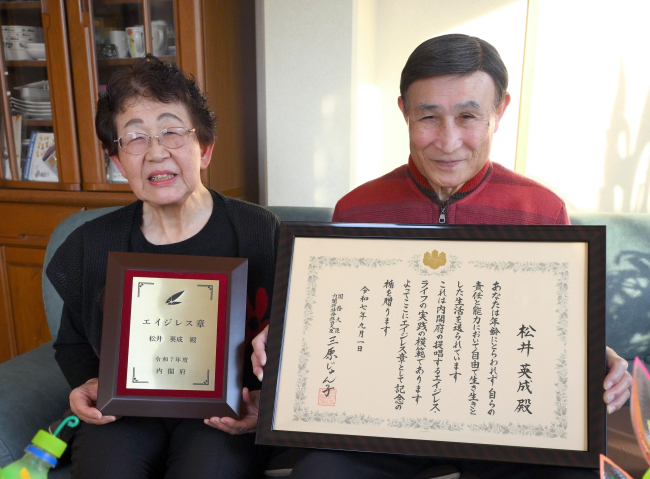 エイジレス章
松井 英成 殿
令和7年度
内閣府
松井 英成 殿
あなたは年齢にとらわれず 自らの
責任と能力において自由で生き生きと
した生活を送られています
これは内閣府の提唱するエイジレス・
ライフの実践の模範であります
よってここにエイジレス章として記念の
楯を贈ります
令和七年九月一日
国務大臣
三原じゅん子